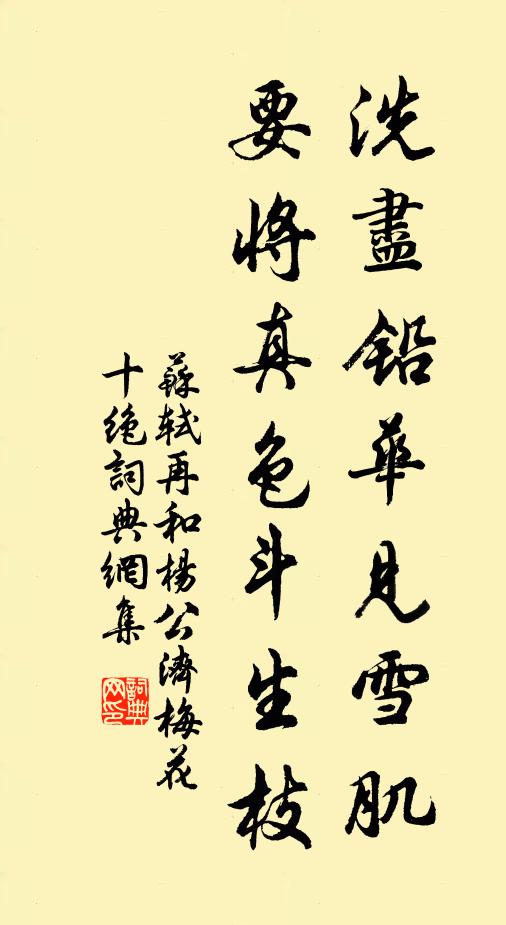 洗盡鉛華見雪肌
要將真色斗生枝
蘇軾再和楊公濟梅花
十絕詞典網集
詞典
网印